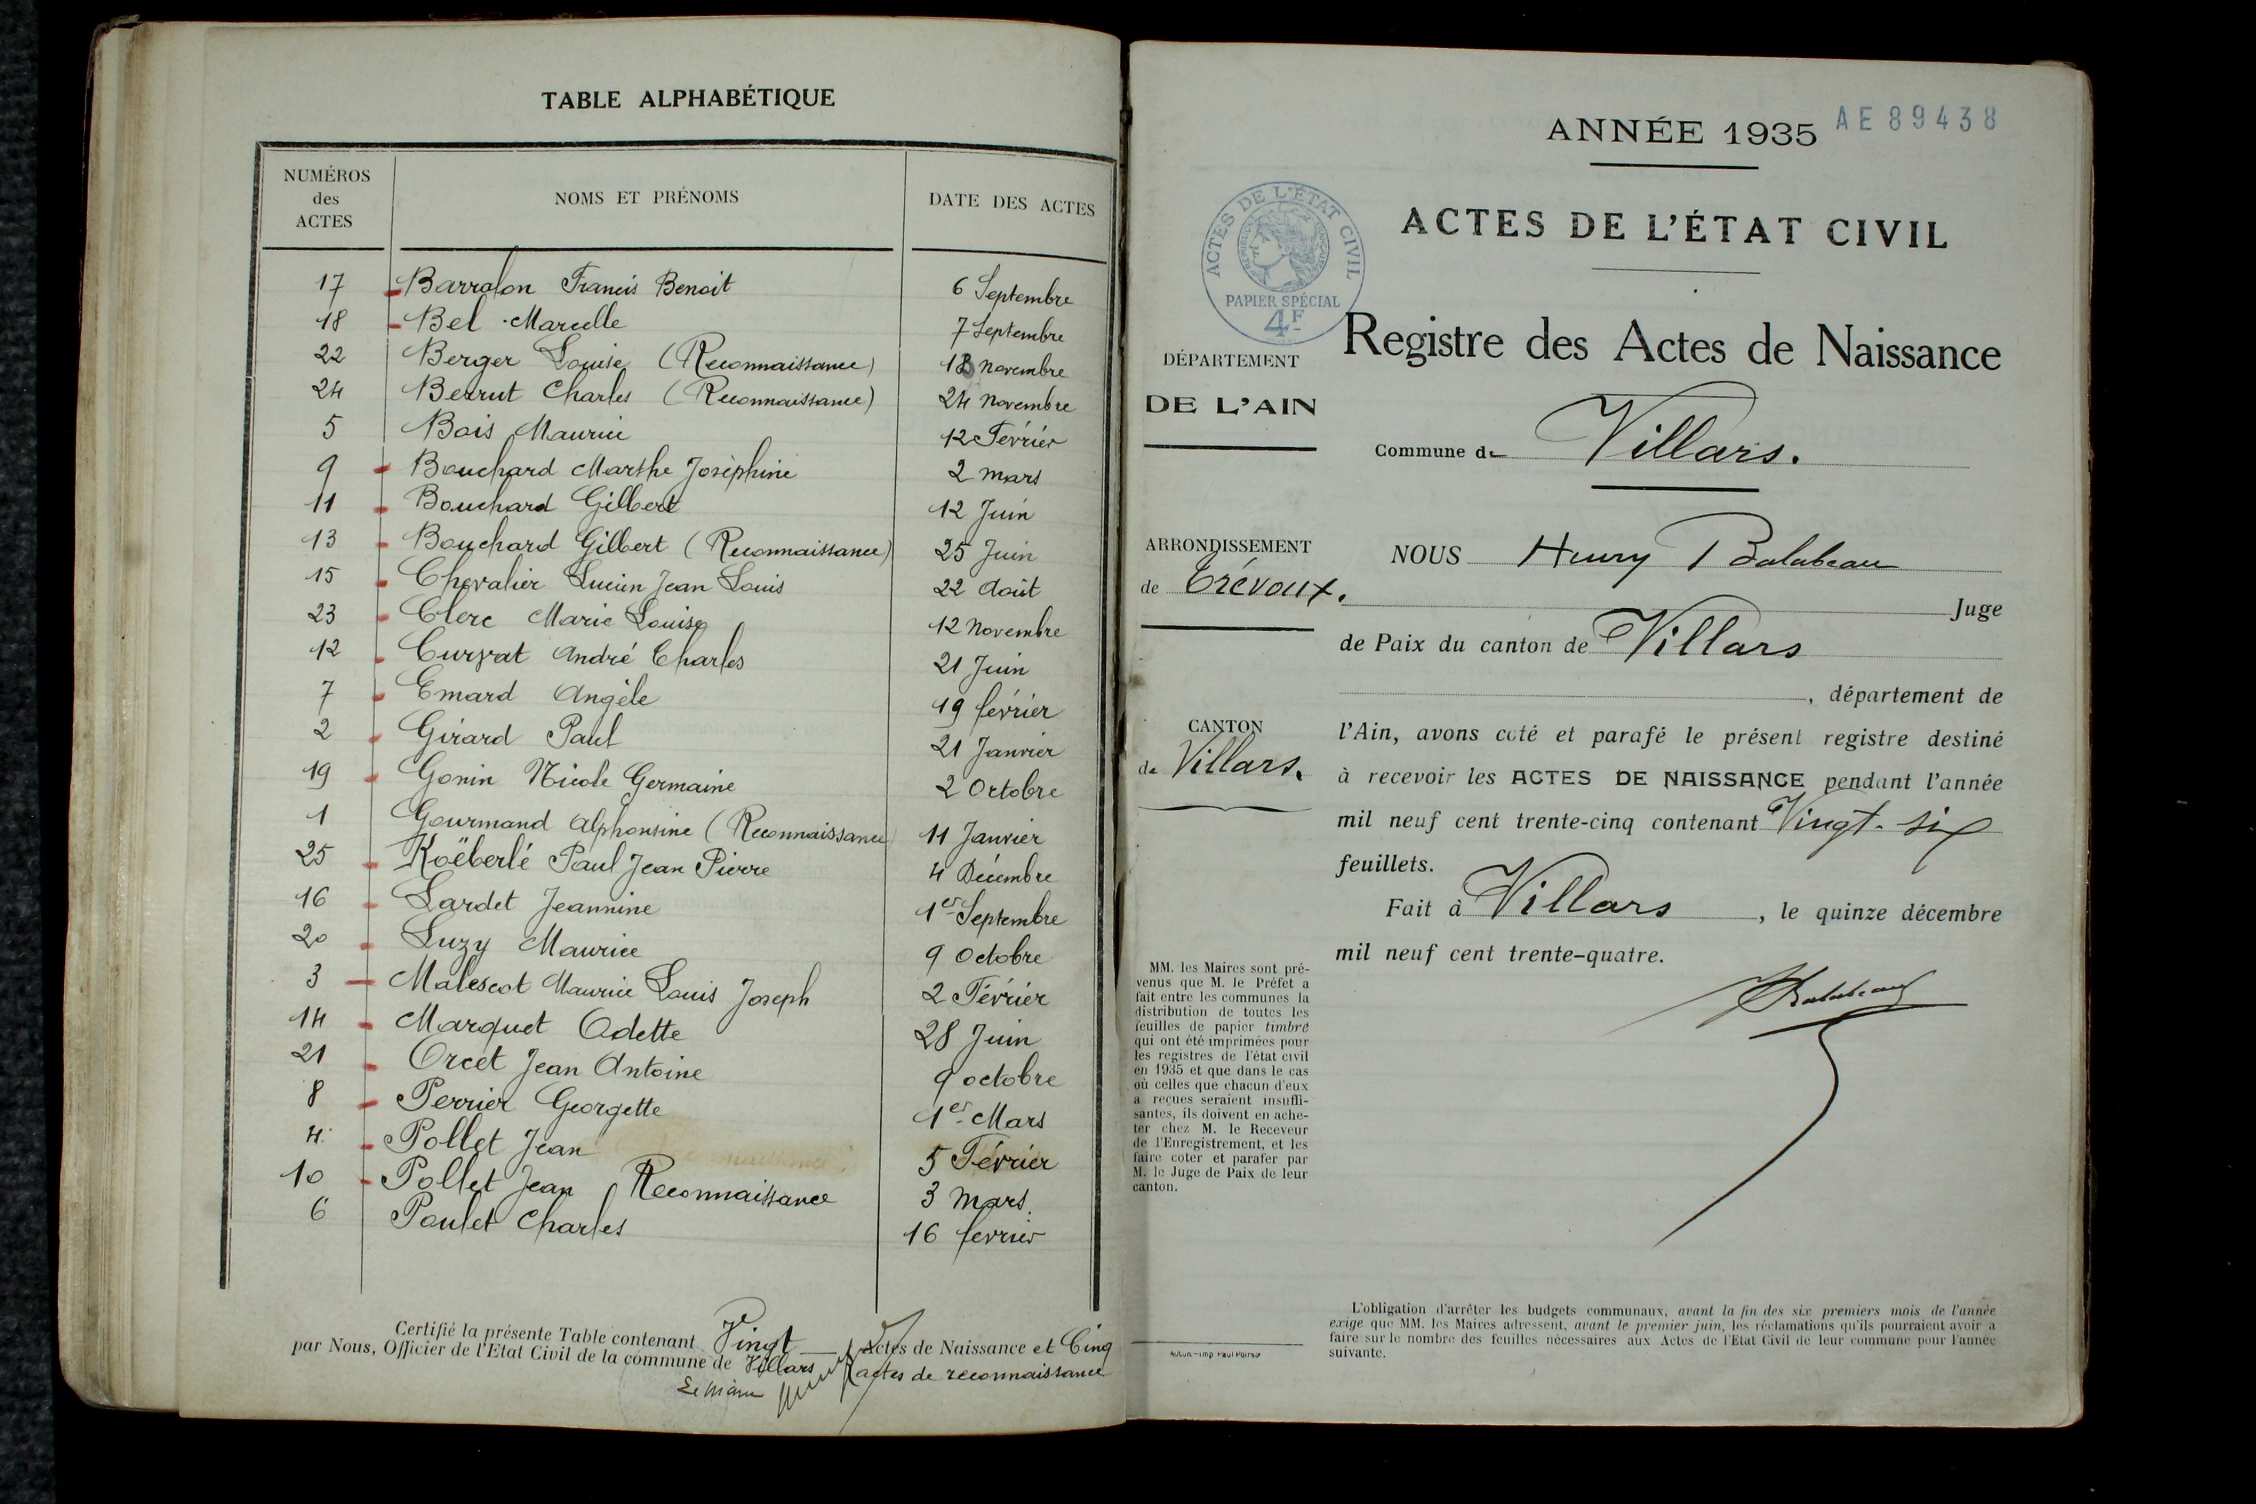 TABLE ALPHABÉTIQUE
NUMÉROS des ACTES NOMS ET PRÉNOMS DATE DES ACTES
17 Barralon Francis Benoit 6 Septembre
18 Bel Marcelle 7 Septembre
22 Berger Louise (Reconnaissance) novembre
24 Berrut Charles (Reconnaissance) 24 novembre
5 Bois Maurice 12 Février
9 Bouchard Marthe Joséphine 2 mars
11 Bouchard Gilbert 12 Juin
13 Bouchard Gilbert (Reconnaissance) 25 Juin
15 Chevalier Lucien Jean Louis 22 Août
23 Clerc Marie Louise 12 novembre
12 Curvat André Charles 21 Juin
7 Emard Angèle 19 février
2 Girard Paul 21 Janvier
19 Gonin Nicole Germaine 2 Octobre
1 Gourmand Alphonsine (Reconnaissance) 11 Janvier
25 Koëberlé Paul Jean Pierre 4 Décembre
16 Lardet Jeannine 1er Septembre
20 Luzy Maurice 9 Octobre
3 Malescot Maurice Louis Joseph 2 Février
14 Marquet Odette 28 Juin
21 Orcet Jean Antoine 9 octobre
8 Perrier Georgette 1er Mars
4 Pollet Jean 5 Février
10 Pollet Jean Reconnaissance 3 Mars.
6 Poulet Charles 16 fevrier
Certifié la présente Table contenant Vingt Actes de Naissance et Cinq
par Nous, Officier de l'Etat Civil de la commune de Villars actes de reconnaissance
Le Maire
ANNÉE 1935 AE89438
ACTES DE L'ÉTAT CIVIL
ACTES DE L'ÉTAT CIVIL
PAPIER SPÉCIAL
4F
Registre des Actes de Naissance
DÉPARTEMENT
DE L'AIN
Commune de Villars.
ARRONDISSEMENT
de Trévoux.
CANTON
de Villars.
NOUS Henry Balabeau
Juge
de Paix du canton de Villars
, département de
l'Ain, avons coté et parafé le présent registre destiné
à recevoir les ACTES DE NAISSANCE pendant l'année
mil neuf cent trente-cinq contenant Vingt-six
feuillets.
Fait à Villars, le quinze décembre
mil neuf cent trente-quatre.
Balabeau
MM. les Maires sont pré-
venus que M. le Préfet a
fait entre les communes la
distribution de toutes les
feuilles de papier timbré
qui ont été imprimées pour
les registres de l'état civil
en 1935 et que dans le cas
où celles que chacun d'eux
a reçues seraient insuffi-
santes, ils doivent en ache-
ter chez M. le Receveur
de l'Enregistrement, et les
faire coter et parafer par
M. le Juge de Paix de leur
canton.
Autun.-Imp. Paul Poirson
L'obligation d'arrêter les budgets communaux, avant la fin des six premiers mois de l'année
exige que MM. les Maires adressent, avant le premier juin, les réclamations qu'ils pourraient avoir à
faire sur le nombre des feuilles nécessaires aux Actes de l'Etat Civil de leur commune pour l'année
suivante.